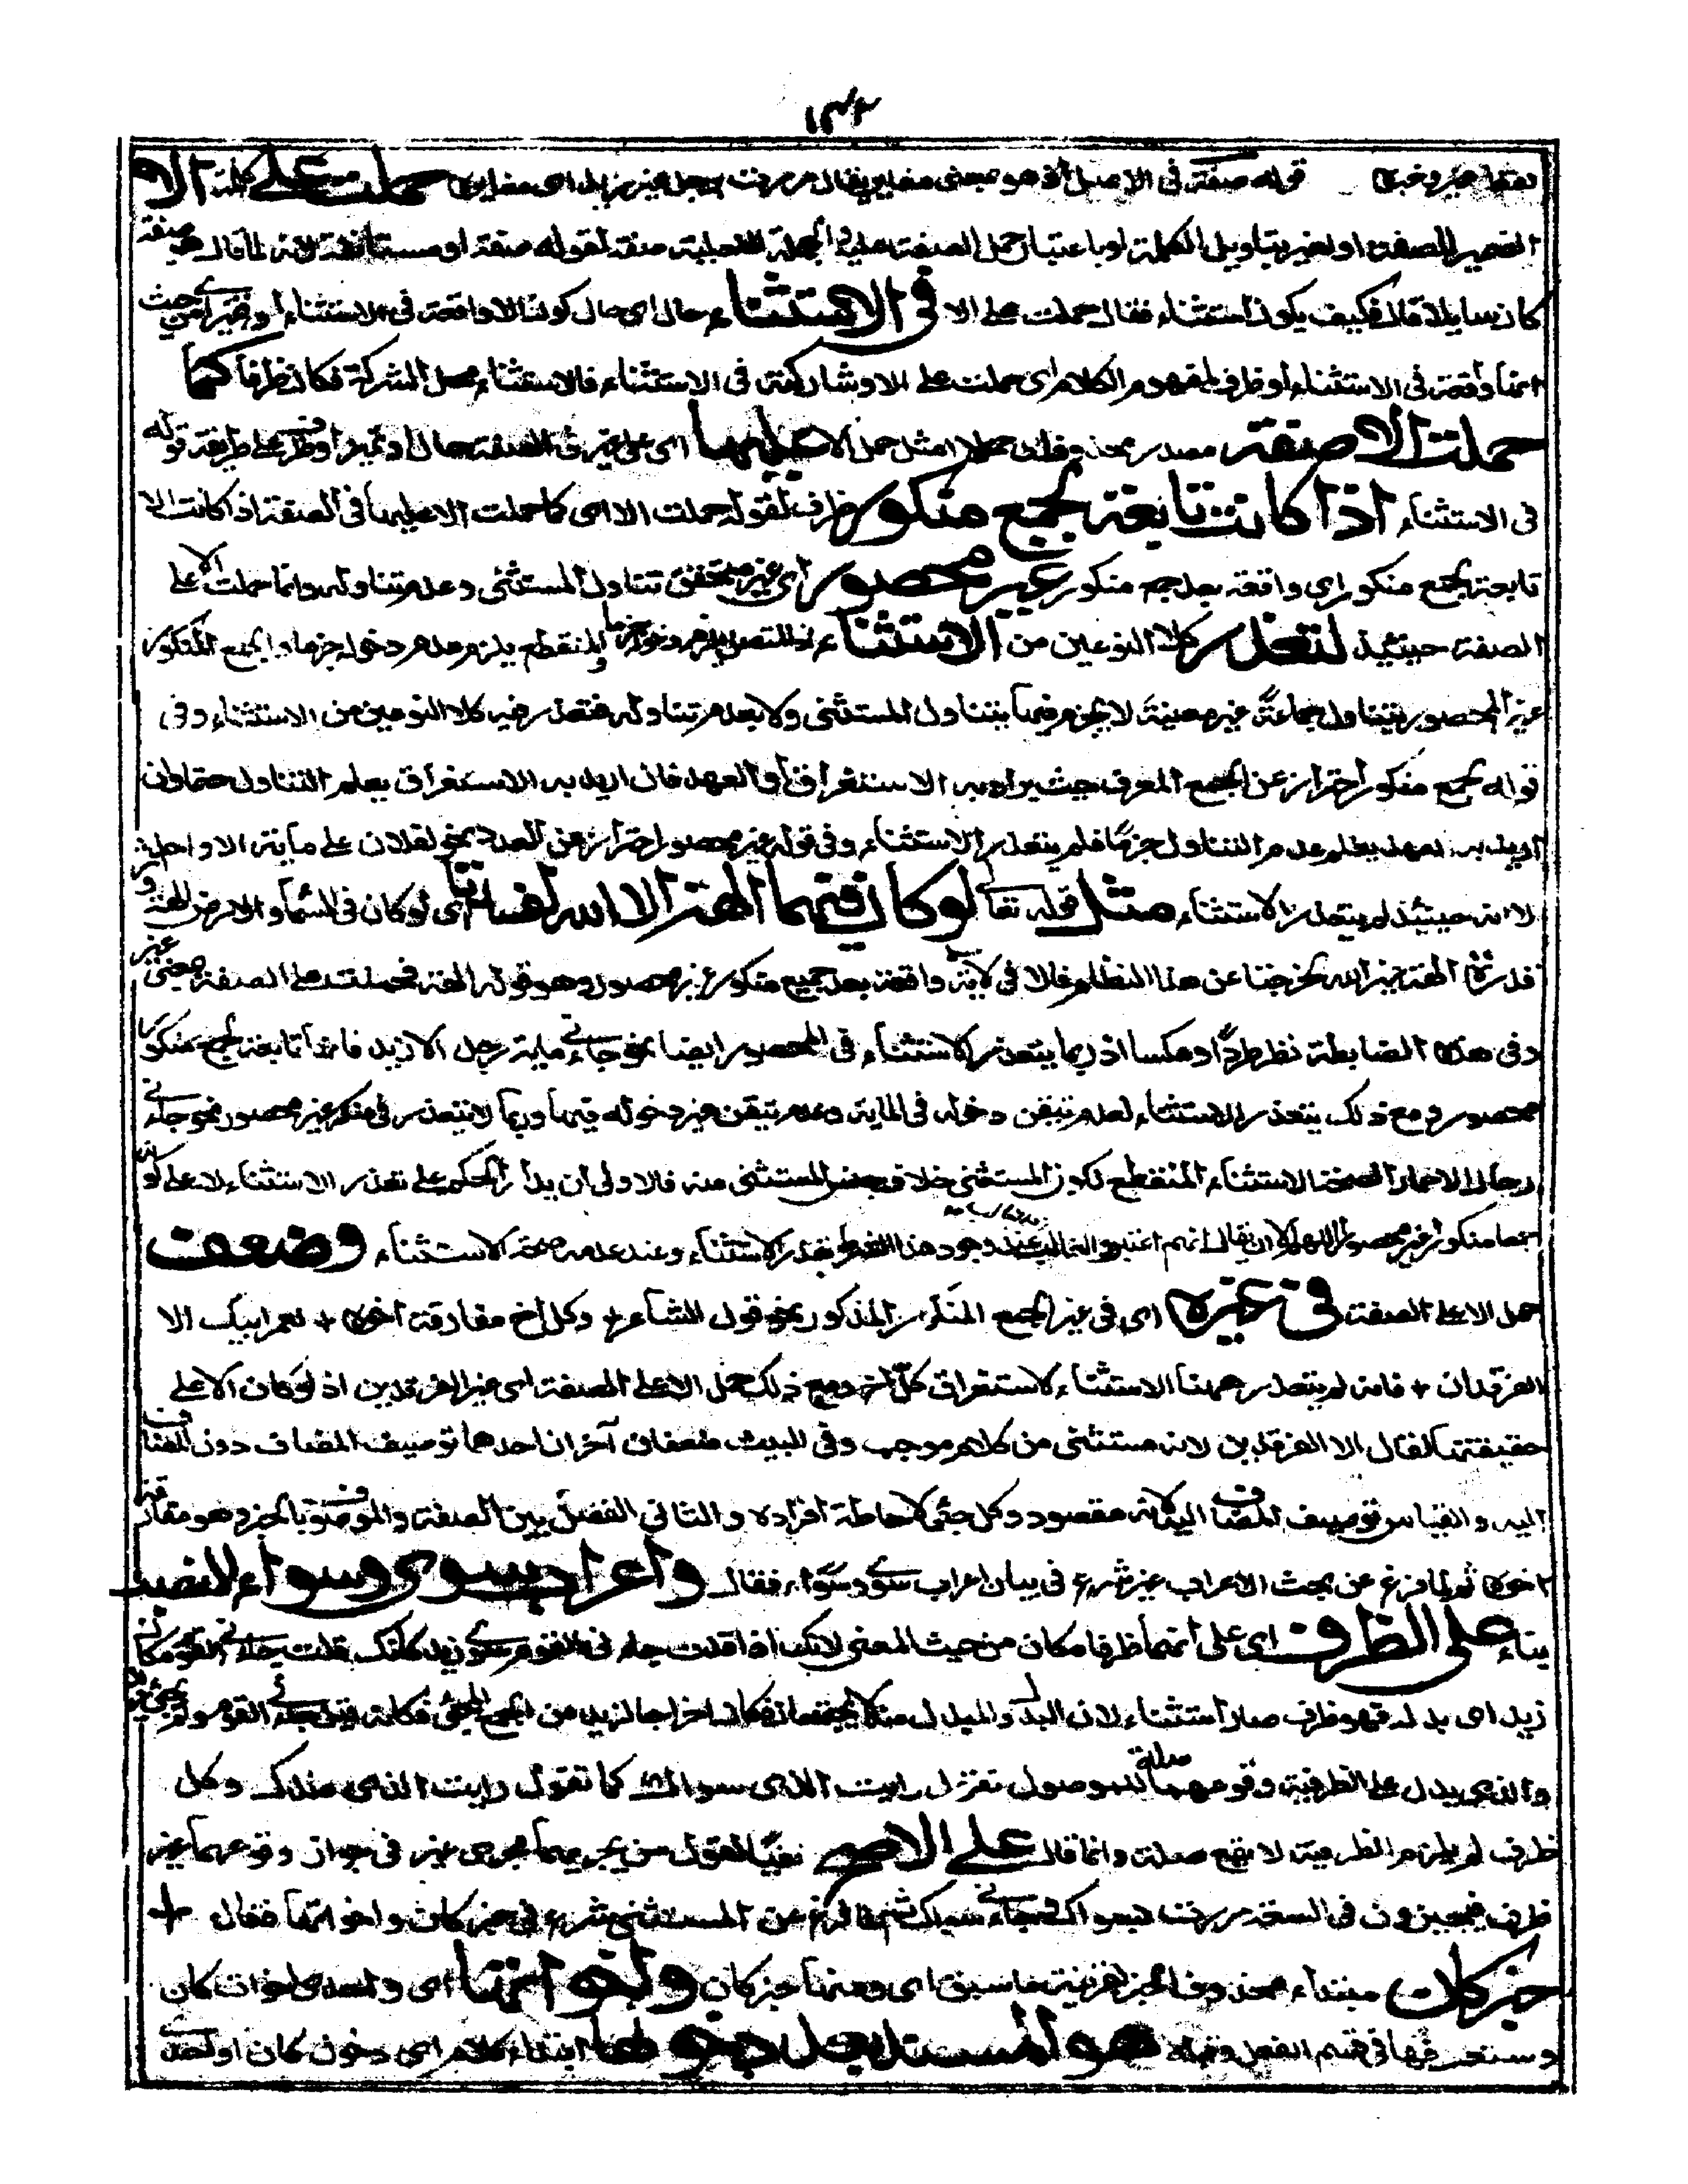 ١٣٢
قوله صفة في الاصل اذ هو بمعنى مغاير يقال مررت برجل غير زيد اى مغايره حملت على كلمة الا
الضمير للصفة او لغير بتاويل الكلمة او باعتبار حمل الصفة عليه والجملة الفعلية صفة لقوله صفة او مستانفة لانه لما قال هو صفة
كان سايلا قال فكيف يكون استثناء فقال حملت على الا في الاستثناء حال اى حال كون الا واقعة في الاستثناء او ضميرا من حيث
انها واقعة في الاستثناء او ظرف لمفهوم الكلام اى حملت على الا وشاركته في الاستثناء فالاستثناء محل الشركة فكان ظرفا كما
حملت الا صفة مصدر محذوف اى حملا مثل حمل الا عليها اى على غير في الصفة حال او تميز او ظرف على طريقة قوله
في الاستثناء اذا كانت تابعة لجمع منكور ظرف لقوله حملت الا اى كما حملت الا عليها في الصفة اذا كانت الا
تابعة لجمع منكور اى واقعة بعد جمع منكور غير محصور اى غير متحقق تناول المستثنى وعدم تناوله وانما حملت الا على
الصفة حينئذ لتعذر كلا النوعين من الاستثناء اذ المتصل يلزم دخوله جزما والمنقطع يلزم عدم دخوله جزما والجمع المنكور
غير المحصور يتناول جماعة غير معينة لا يجزم فيها بتناول المستثنى ولا بعدم تناوله فتعذر فيه كلا النوعين من الاستثناء وفى
قوله لجمع منكور احتراز عن الجمع المعرف حيث يراد به الاستغراق او العهد فان اريد به الاستغراق يعلم التناول حتما وان
اريد به العهد يعلم عدم التناول جزما فلم يتعذر الاستثناء وفى قوله غير محصور احتراز عن العدد نحو لفلان على مائة الا واحد
لانه حينئذ لم يتعذر الاستثناء مثل قوله تعالى لو كان فيهما آلهة الا الله لفسدتا اى لو كان فى السماء والارض آلهة
الهة غير الله لخرجتا عن هذا النظام فالا فى الاية واقعة بعد جمع منكور غير محصور وهو قوله الهة فحملت على الصفة بمعنى غير
وفى هذه الضابطة نظر طردا وعكسا اذ ربما يتعذر الاستثناء فى المحصور ايضا نحو جاءنى مائة رجل الا زيد فانها تابعة لجمع منكور
محصور ومع ذلك يتعذر الاستثناء لعدم تيقن دخوله فى المائة وعدم تيقن عدم دخوله فيها وربما لا يتعذر فى منكر غير محصور نحو جاءنى
رجال الا حمارا لصحة الاستثناء المنقطع لكون المستثنى خلاف جنس المستثنى منه فالاولى ان يدار الحكم على تعذر الاستثناء لا على كونه
جمعا منكورا غير محصور اللهم الا ان يقال انهم اعتبروا الغالب عند وجود هذا الشرط تعذر الاستثناء وعند عدمه صحة الاستثناء وضعف
حمل الا على الصفة فى غيره اى فى غير الجمع المنكر المذكور نحو قول الشاعر + وكل اخ مفارقه اخوه + لعمر ابيك الا
الفرقدان + فانه لم يتعذر ههنا الاستثناء لاستغراق كل اخ ومع ذلك حمل الا على الصفة اى غير الفرقدين اذ لو كان الا على
حقيقتها لقال الا الفرقدين لانه مستثنى من كلام موجب وفى البيت ضعفان آخران احدهما توصيف المضاف دون المضاف
اليه والقياس توصيف المضاف اليه لانه مقصود وكل جئ لاحاطة افراده والثانى الفصل بين الصفة والموصوف بالخبر وهو مفارقه
اخوه ثم لما فرغ عن بحث الاعراب غير شرع فى بيان اعراب سوى وسواء فقال واعراب سوى وسواء النصب
بناء على الظرف اى على انهما ظرفا مكان من حيث المعنى لانك اذا قلت جاءنى القوم سوى زيد كانك قلت جاءنى القوم مكان
زيد اى بدله فهو ظرف صار استثناء لان البدل والمبدل منه لا يجتمعان فكان اخراجا لزيد من الجمع المجئ فكانه قيل جاءنى القوم ولم يجئ زيد
والذى يدل على الظرفية وقوعهما صلة للموصول نقول رايت الذى سواك كما تقول رايت الذى عندك وكل
ظرف لم يلزم الظرفية لا يقع صلة وانما قال على الاصح نفيا لقول من يجريهما مجرى غير فى جواز وقوعهما غير
ظرف فيجيزون فى السعة مررت بسواك وجاءنى سواك ثم لما فرغ عن المستثنى شرع فى خبر كان واخواتها فقال +
خبر كان مبتداء محذوف الخبر لقرينة ما سبق اى ومنها خبر كان واخواتها اى واحدى اخوات كان
وستعرفها فى قسم الفعل وقوله هو المسند بعد دخولها ابتداء كلام اى دخول كان او احدى